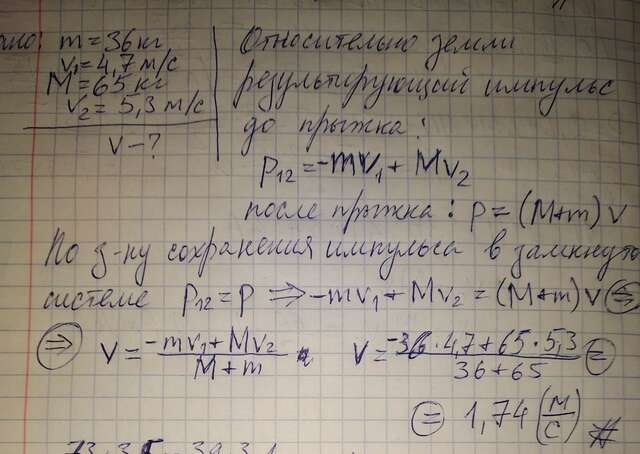 m = 36 кг
v₁ = 4,7 м/с
M = 65 кг
v₂ = 5,3 м/с
v – ?
Относительно земли
результирующий импульс
до прыжка:
p₁₂ = -mv₁ + Mv₂
после прыжка: p = (M+m) v
По з-ну сохранения импульса в замкнуто
системе p₁₂ = p ⇒ -mv₁ + Mv₂ = (M+m) v ⇒
⇒ v = (-mv₁ + Mv₂)/(M + m) v = (-36 · 4,7 + 65 · 5,3)/(36 + 65) =
= 1,74 (м/с) #